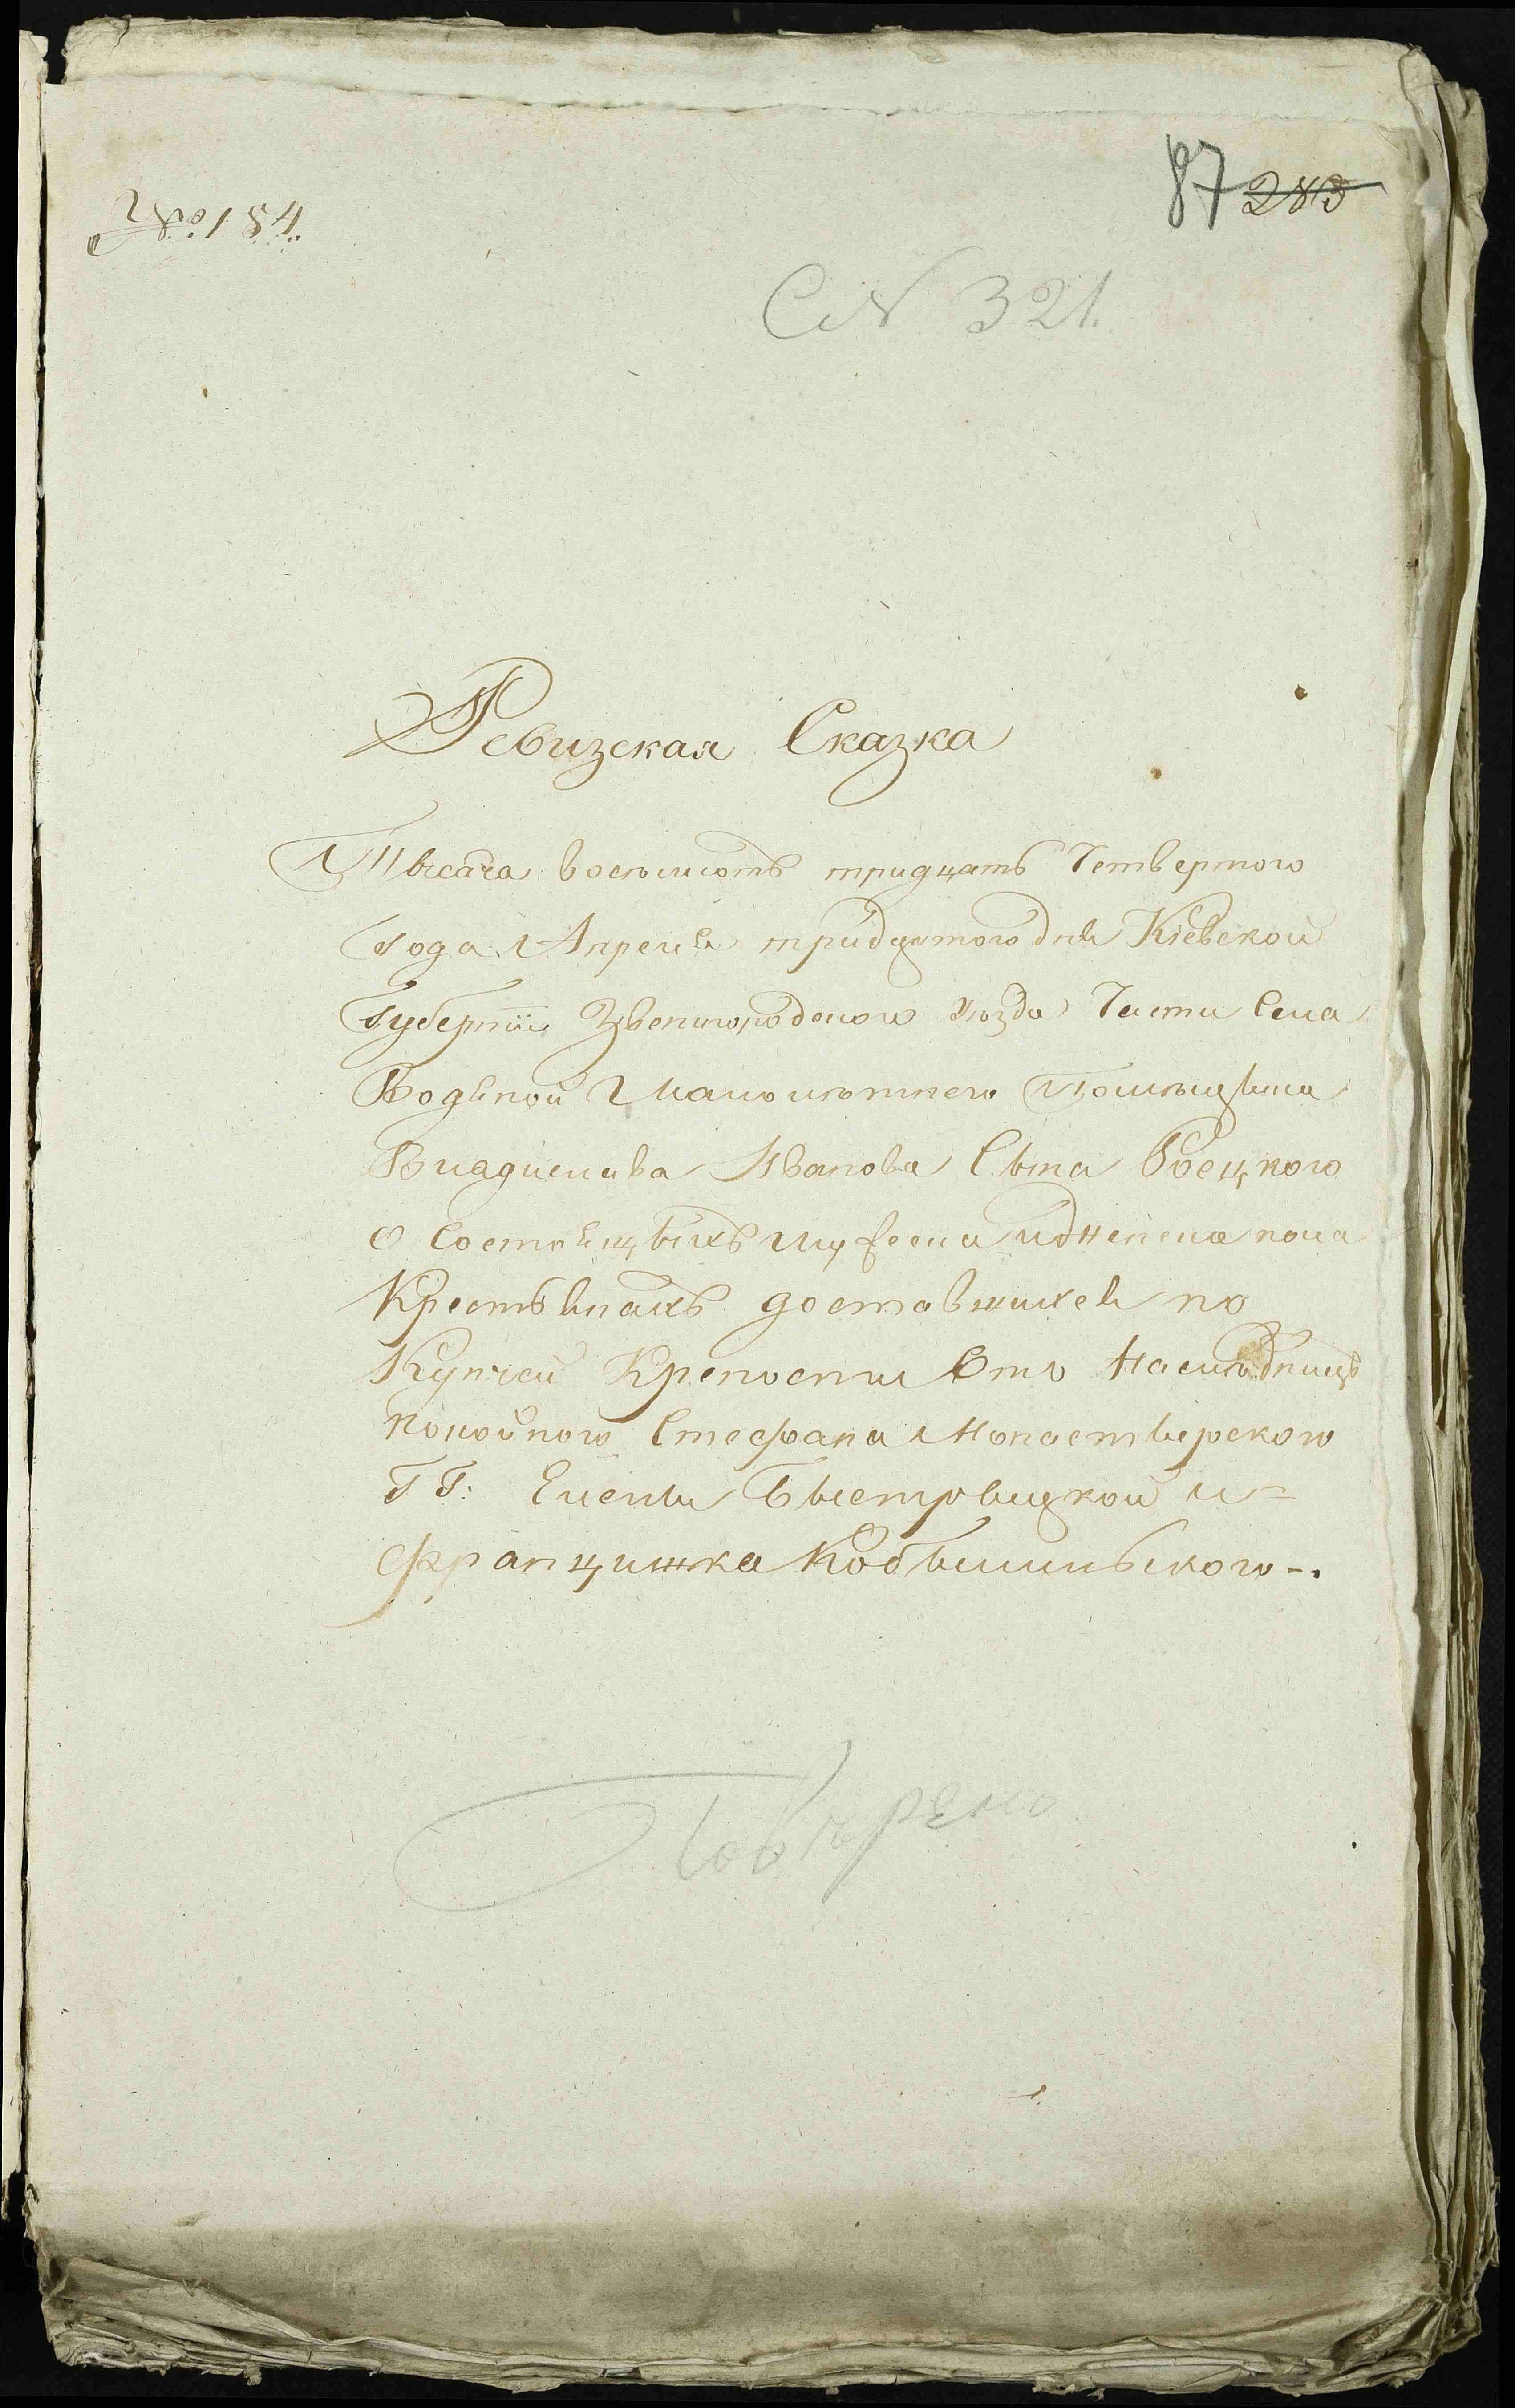 № 184.
87 283
№ 321.
Ревизская Сказка
Тысяча восемсотъ тридцать Четвертого
года Апреля тридцатого дня Кіевской
Губерніи Звенигородского уѣзда Части Села
Водяной Малолѣтнего Помѣщика
Владислава Иванова Сына Роецкого
О Состоящыхъ мужеска и женска пола
Крестьянахъ доставшихся по
Купчей Крепости Отъ Наслѣдницъ
покойного Стефана Монастырского
ГГ: Елены Быстровицкой и=
Францишка Кобылинского -.
Повѣрено